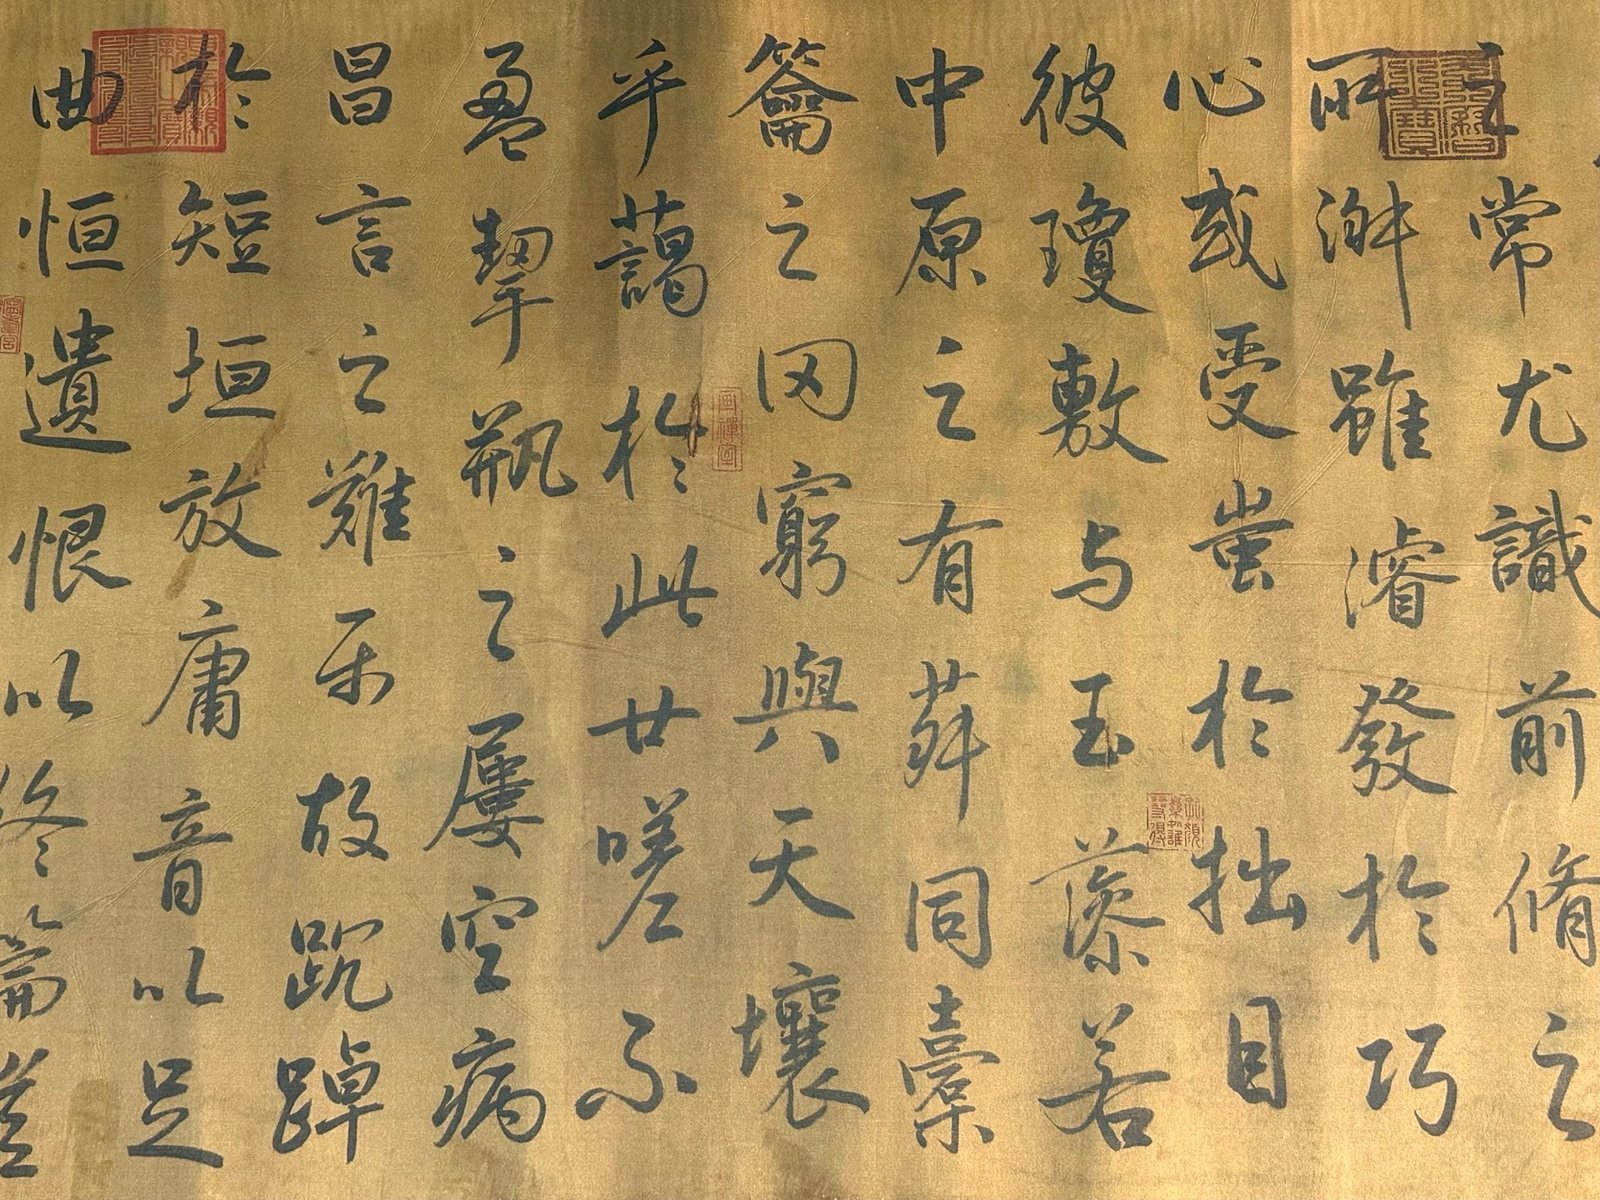 之常尤識前脩之
所淑雖濬發於巧
心或受蚩於拙目
彼瓊敷与玉藻若
中原之有菽同橐
籥之罔窮與天壤
乎藹於此廿嗟不
盈挈瓶之屢空病
昌言之難故踸踔
於短垣放庸音以足
曲恒遺恨以終篇豈
畫禪室